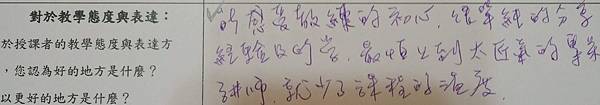 對於教學態度與表達：
於授課者的教學態度與表達方
，您認為好的地方是什麼？
以更好的地方是什麼？
感受教練的初心，很單純的分享
經驗及所學，最怕上到太匠氣的專業
講師，就少了課程的溫度